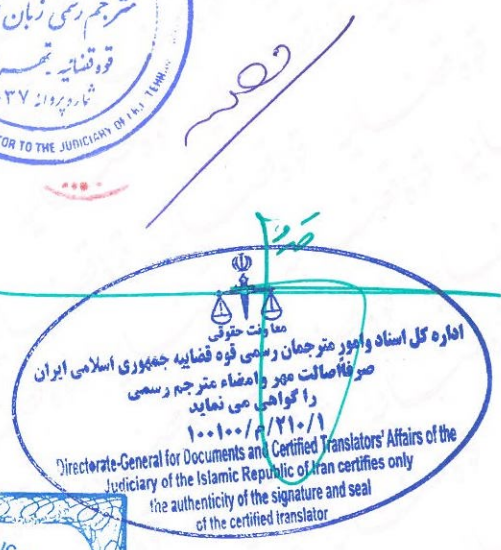 مترجم رسمی زبان
قوه قضائیه تهر
شماره پروانه ۳۷
TOR TO THE JUDICIARY OF THE TEHR
معاونت حقوقی
اداره کل اسناد وامور مترجمان رسمی قوه قضاییه جمهوری اسلامی ایران
صرفااصالت مهر وامضاء مترجم رسمی
را گواهی می نماید
۱۰۰۱۰۰/م/۲۱۰/۱
Directorate-General for Documents and Certified Translators' Affairs of the
Judiciary of the Islamic Republic of Iran certifies only
the authenticity of the signature and seal
of the certified translator